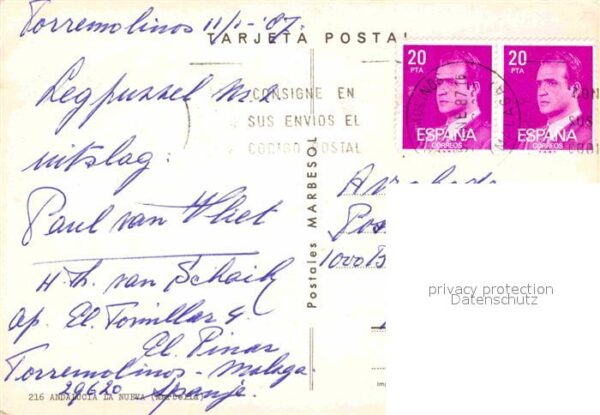 Torremolinos 11/1-'87.
TARJETA POSTAL
Legpuzzel no. 2
uitslag:
Paul van Vliet
H. Th. van Schaik
ap. El Tomillar 4
El Pinar
Torremolinos - Malaga.
29620 Spanje.
216 ANDALUCIA LA NUEVA (Marbella)
Postales MARBESOL
CONSIGNE EN
SUS ENVIOS EL
CODIGO POSTAL
20
PTA
ESPAÑA
CORREOS
20
PTA
ESPAÑA
CORREOS
Pos
1000 B
privacy protection
Datenschutz